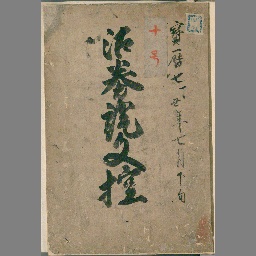 寳暦七丁丑年七月下旬
十号
沽券證文控